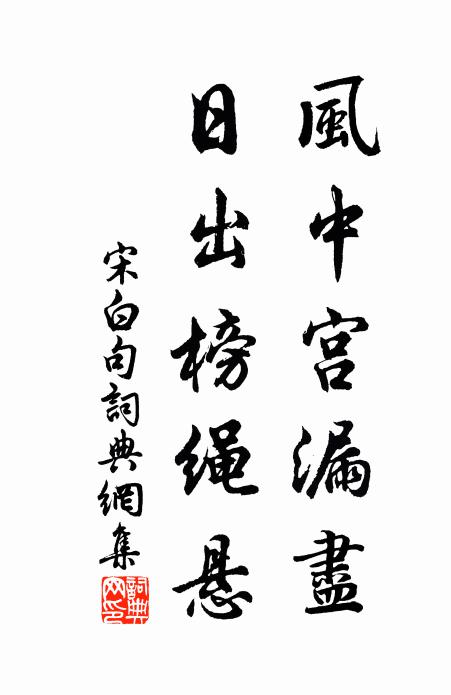 風中宫漏盡
日出榜绳悬
宋白句詞典網集
詞典网印